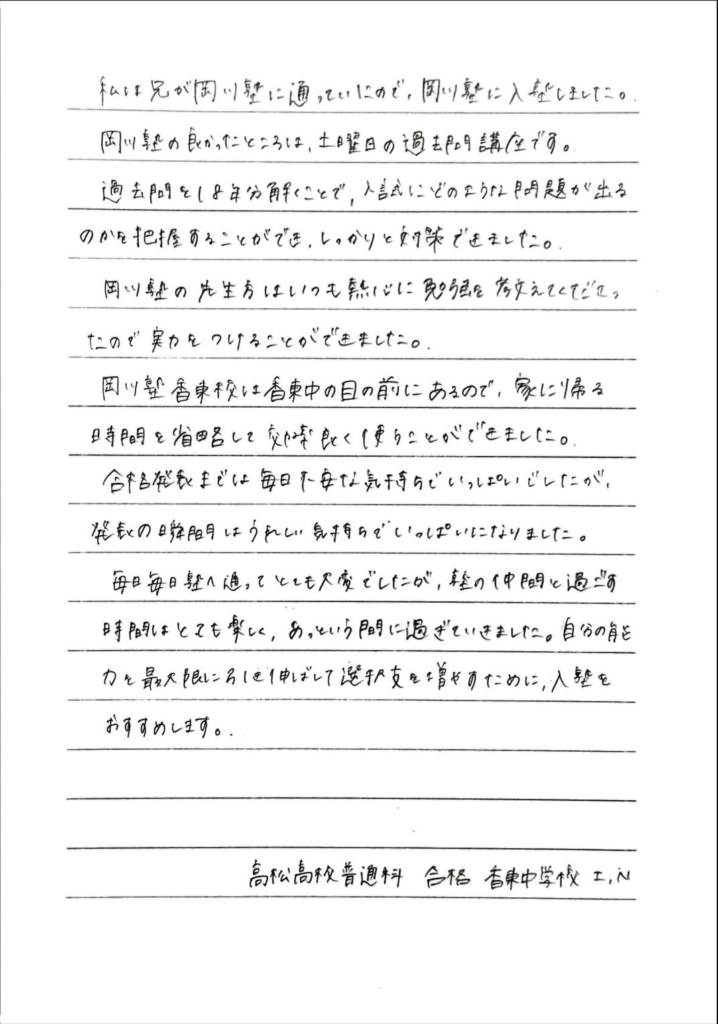 私は兄が岡川塾に通っていたので、岡川塾に入塾しました。
岡川塾の良かったところは、土曜日の過去問講座です。
過去問を18年分解くことで、入試にどのような問題が出る
のかを把握することができ、しっかりと対策できました。
岡川塾の先生方はいつも熱心に勉強を教えてくださっ
たので実力をつけることができました。
岡川塾香東校は香東中の目の前にあるので、家に帰る
時間を省略して効率良く使うことができました。
合格発表までは毎日不安な気持ちでいっぱいでしたが、
発表の瞬間はうれしい気持ちでいっぱいになりました。
毎日毎日塾へ通ってとても大変でしたが、塾の仲間と過ごす
時間はとても楽しく、あっという間に過ぎていきました。自分の能
力を最大限に引き伸ばして選択支を増やすために、入塾を
おすすめします。
高松高校普通科 合格 香東中学校 I.N